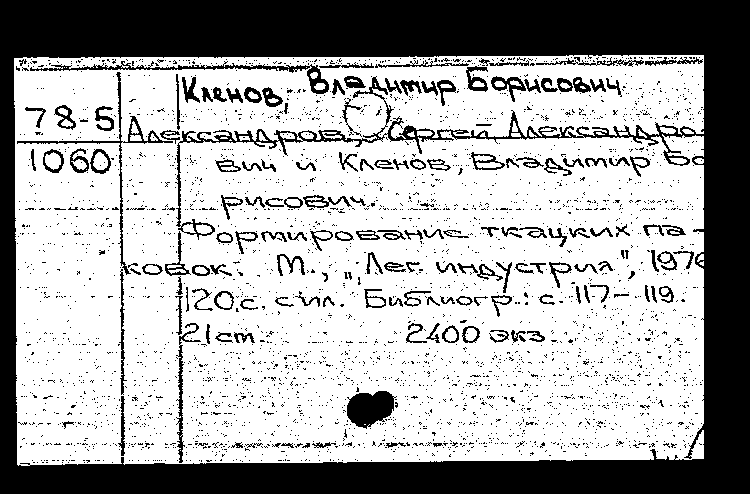 Кленов, Владимир Борисович
78-5
Александров, Сергей Александро-
1060
вич и Кленов, Владимир Бо
рисович.
Формирование ткацких па-
ковок. М., "Лег. индустрия", 1976
120 с. с ил. Библиогр.: с. 117-119.
21 cm. 2400 экз.